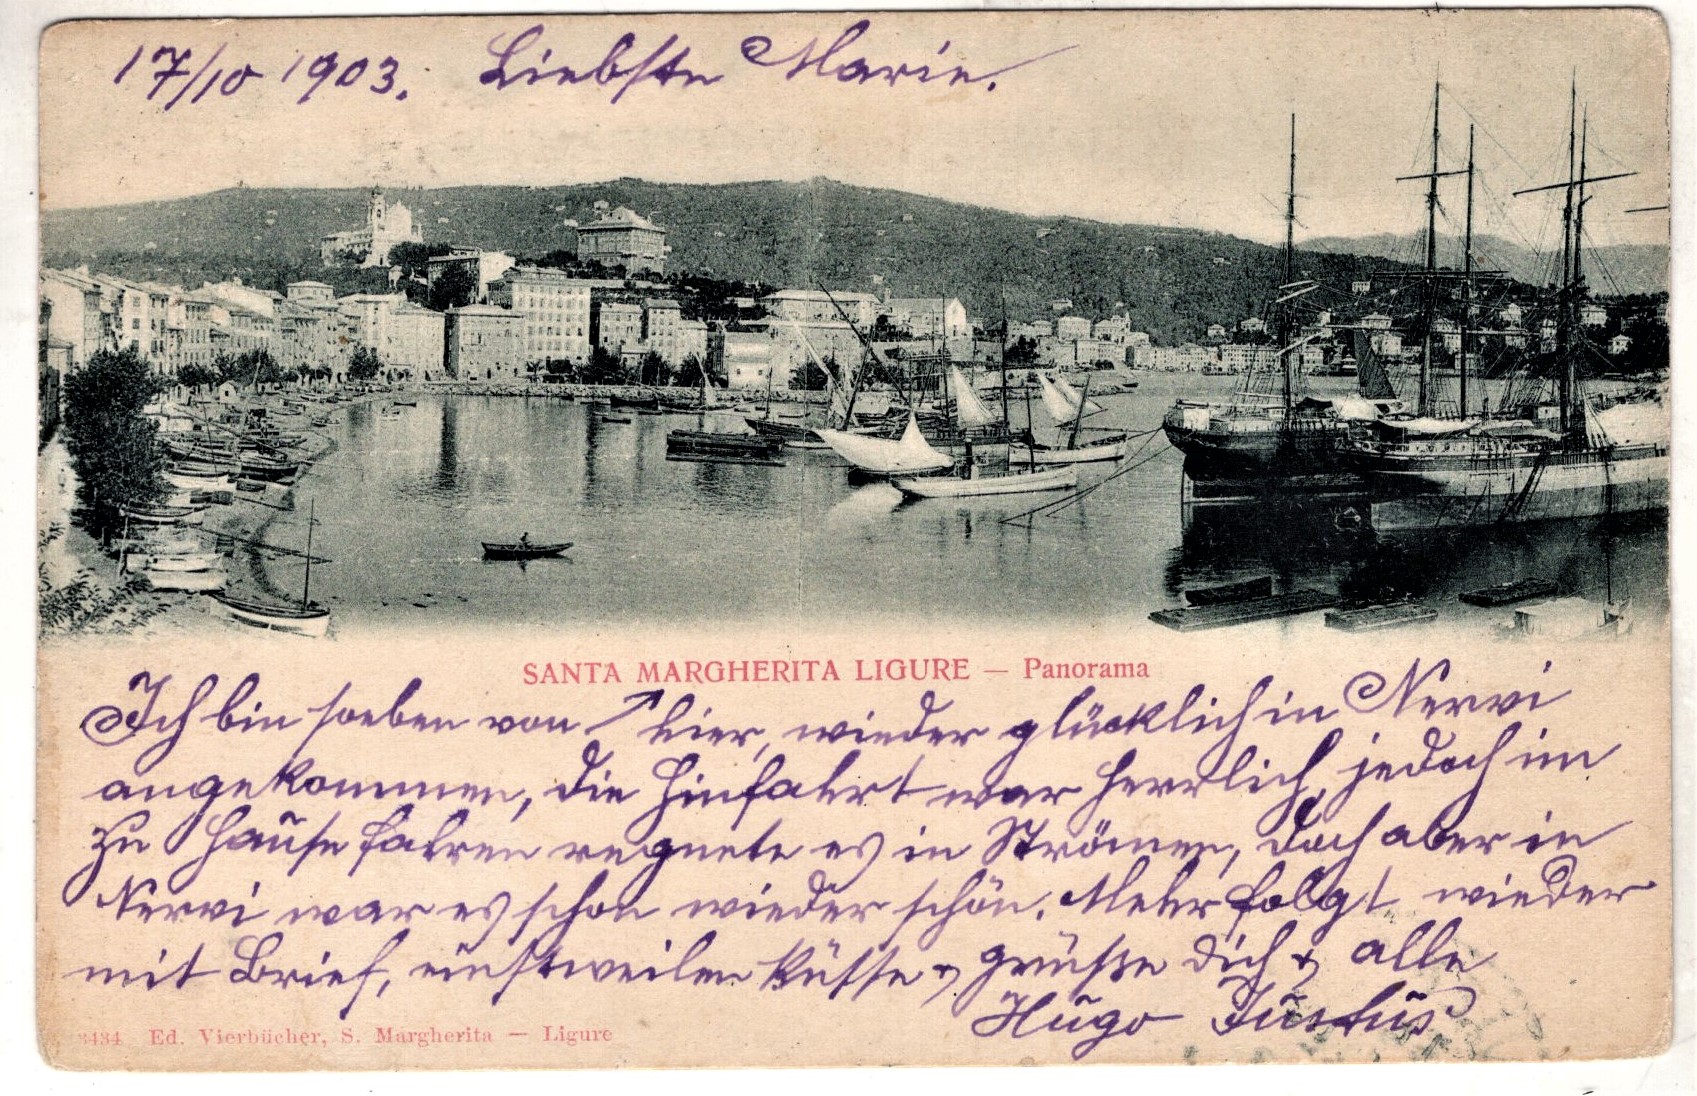 17/10 1903. Liebste Marie.
SANTA MARGHERITA LIGURE — Panorama
Ich bin soeben von ↗ hier, wieder glücklich in Nervi
angekommen, die Hinfahrt war herrlich, jedoch im
zu Hause fahren regnete es in Strömen, doch aber in
Nervi war es schon wieder schön. Mehr folgt wieder
mit Brief, einstweilen küsse & grüße dich & alle
Hugo Justus
3434 Ed. Vierbücher, S. Margherita — Ligure